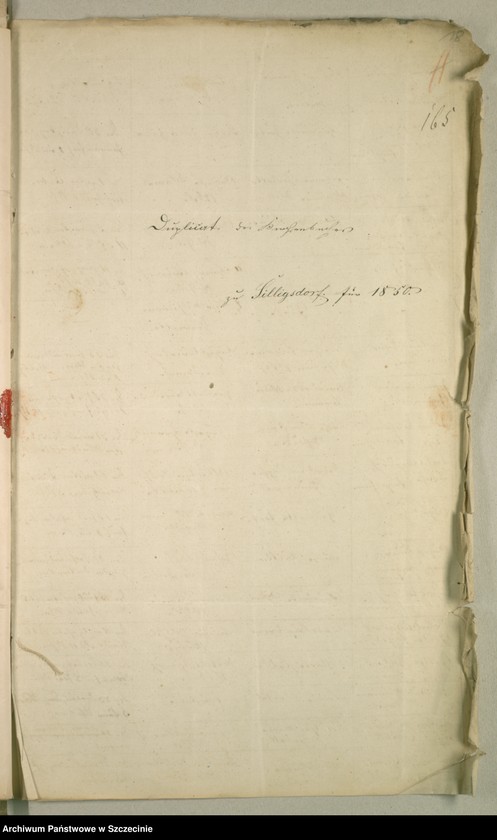 165
Duplicat des Kirchenbuches
zu Silligsdorf für 1850.
Archiwum Państwowe w Szczecinie